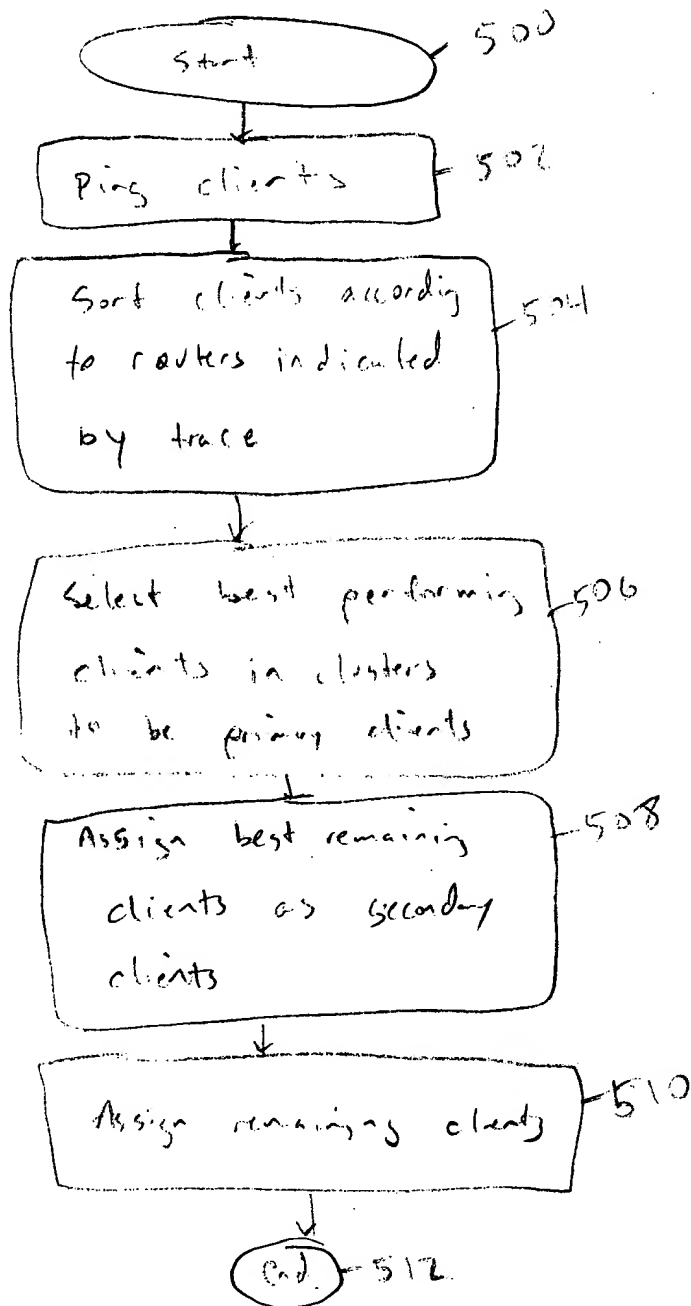 Start
500
Ping clients
502
Sort clients according
to routers indicated
by trace
504
Select best performing
clients in clusters
to be primary clients
506
Assign best remaining
clients as secondary
clients
508
Assign remaining clients
510
End
512